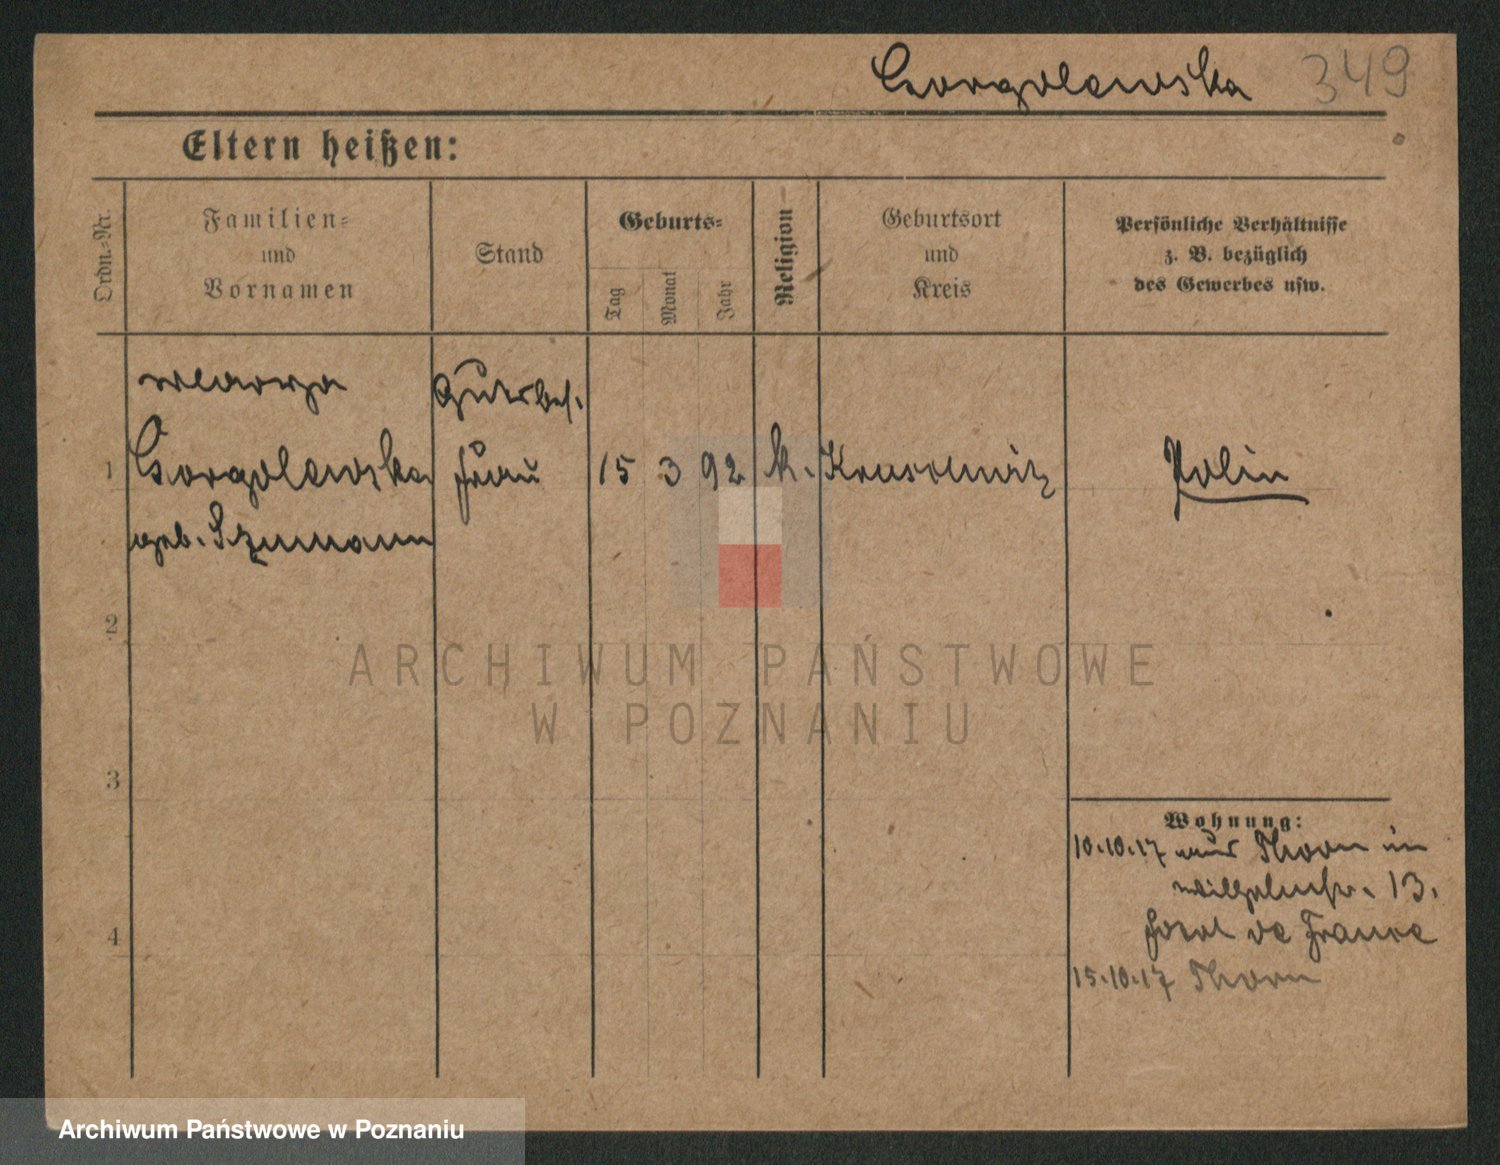 Gorgolewska 349
Eltern heißen:
Ordn.-Nr.
Familien-
und
Vornamen
Stand
Geburts-
Tag
Monat
Jahr
Religion
Geburtsort
und
Kreis
Persönliche Verhältnisse
z. B. bezüglich
des Gewerbes usw.
Gutsbes.
1 Gorgolewska Frau 15 3 92 k. Polin
geb. Szumann
2
3
4
Wohnung:
10.10.17 aus Thorn in
Wilhelmstr. 13.
Hotel de France
15.10.17 Thorn
ARCHIWUM PAŃSTWOWE
W POZNANIU
Archiwum Państwowe w Poznaniu